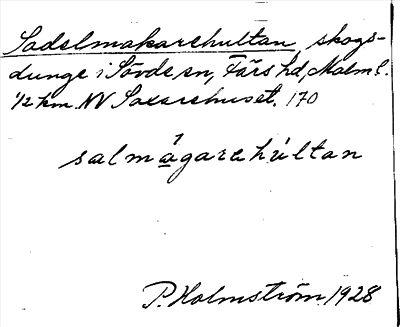 Sadelmakarehultan, skogs-
dunge i Sövde sn, Färs hd, Malm l.
1/2 km. NV Saxarehuset. 170
salmågarehúltan
P. Holmström 1928